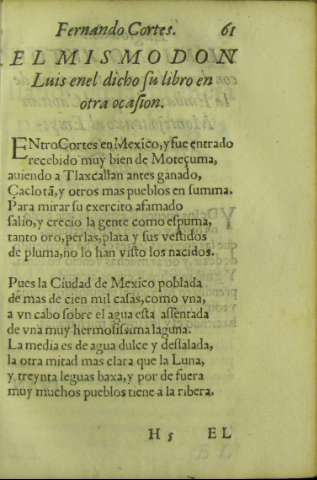 Fernando Cortes. 61
EL MISMO DON
Luis enel dicho ſu libro en
otra ocaſion.
ENtro Cortes en Mexico, y fue entrado
recebido muy bien de Moteçuma,
auiendo a Tlaxcallan antes ganado,
Caclotã, y otros mas pueblos en ſumma.
Para mirar ſu exercito afamado
ſalio, y crecio la gente como eſpuma,
tanto oro, perlas, plata y ſus veſtidos
de pluma, no lo han viſto los nacidos.
Pues la Ciudad de Mexico poblada
de mas de cien mil caſas, como vna,
a vn cabo ſobre el agua eſta aſſentada
de vna muy hermoſiſsima laguna.
La media es de agua dulce y deſſalada,
la otra mitad mas clara que la Luna,
y treynta leguas baxa, y por de fuera
muy muchos pueblos tiene a la ribera.
H 5 EL